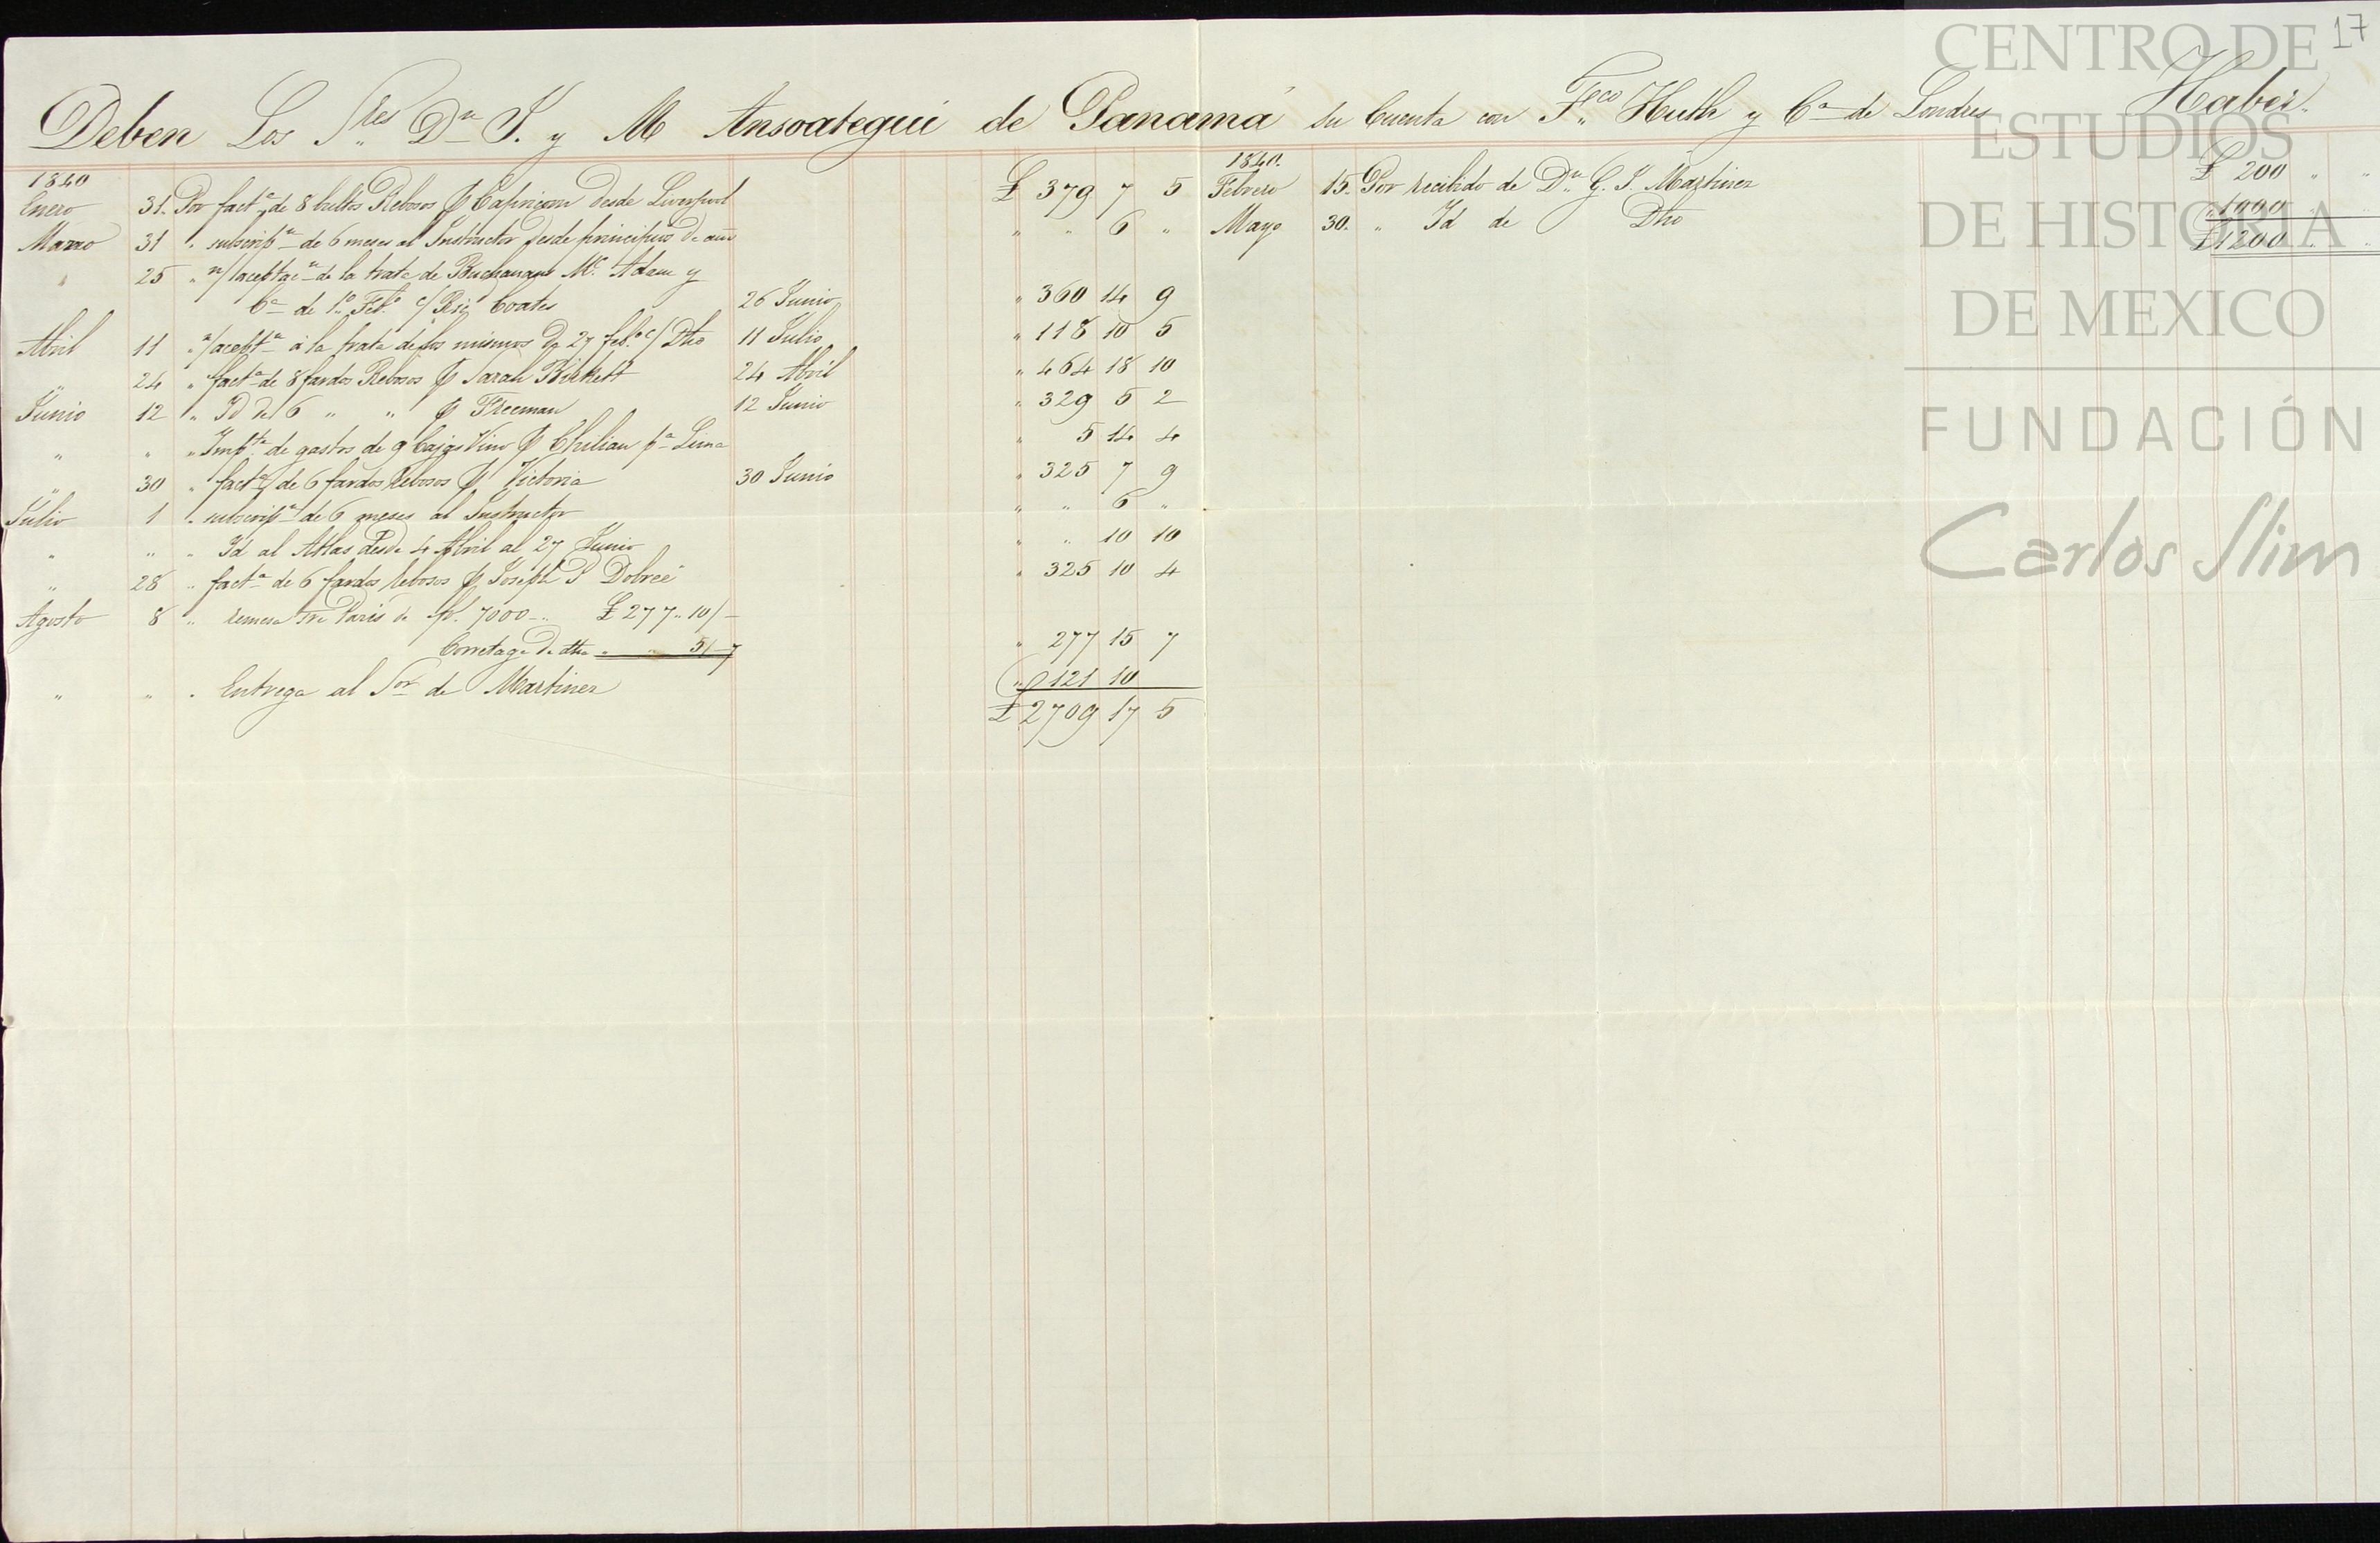 17
Deben Los S.res D.n J. y M Ansoategui de Panamá su Cuenta con F.co Huth y C.a de Londres Haber.
1840
Enero 31. Por fact.a de 8 bultos Rebosos p Capricorn desde Liverpool £ 379 7 5
Marzo 31 " subscrip.n de 6 meses al Instructor desde principios de año " " 6 "
" 25 " n/ aceptac.n de la trata de Buchanans Mc Adam y
C.a de 1.o Feb.o c/ Coates 26 Junio " 360 14 9
Abril 11 " n/ acept.n á la trata de los mismos De 27 feb.o c/ Dho 11 Julio " 118 10 5
" 24 " fact.a de 8 fardos Rebosos p Sarah Birkett 24 Abril " 464 18 10
Junio 12 " Id de 6 " " p Freeman 12 Junio " 329 5 2
" " " Imp.te de gastos de 9 Cajas Vino p Chilian p.a Lima " 5 14 4
" 30 " fact.a de 6 fardos Rebosos p Victoria 30 Junio " 325 7 9
Julio 1 " subscrip.n de 6 meses al Instructor " " 6 "
" " " Id al Atlas desde 4 Abril al 27 Junio " " 10 10
" 28 " fact.a de 6 fardos rebosos p Joseph P Dobreé " 325 10 4
Agosto 8 " remesa sre Paris de 7000 - " £ 277 " 10/-
Corretage de dha " " 5/-7 " 277 15 7
" " " Entrega al S.or de Martinez " 121 10
£ 2709 17 5
1840.
Febrero 15. Por recibido de D.n G. J. Martinez £ 200 " "
Mayo 30. " Id de Dho " 1000 " "
£ 1200 " "
CENTRO DE
ESTUDIOS
DE HISTORIA
DE MEXICO
FUNDACIÓN
Carlos Slim